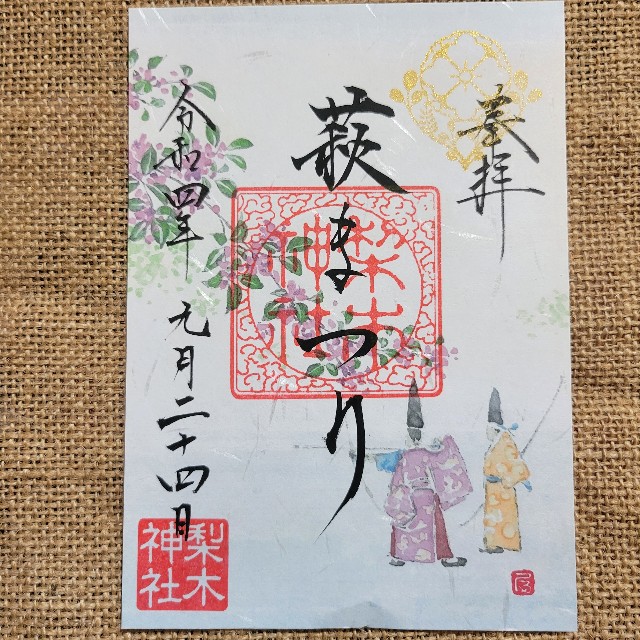 奉拝
萩まつり
梨木神社
令和四年 九月二十四日
梨木神社